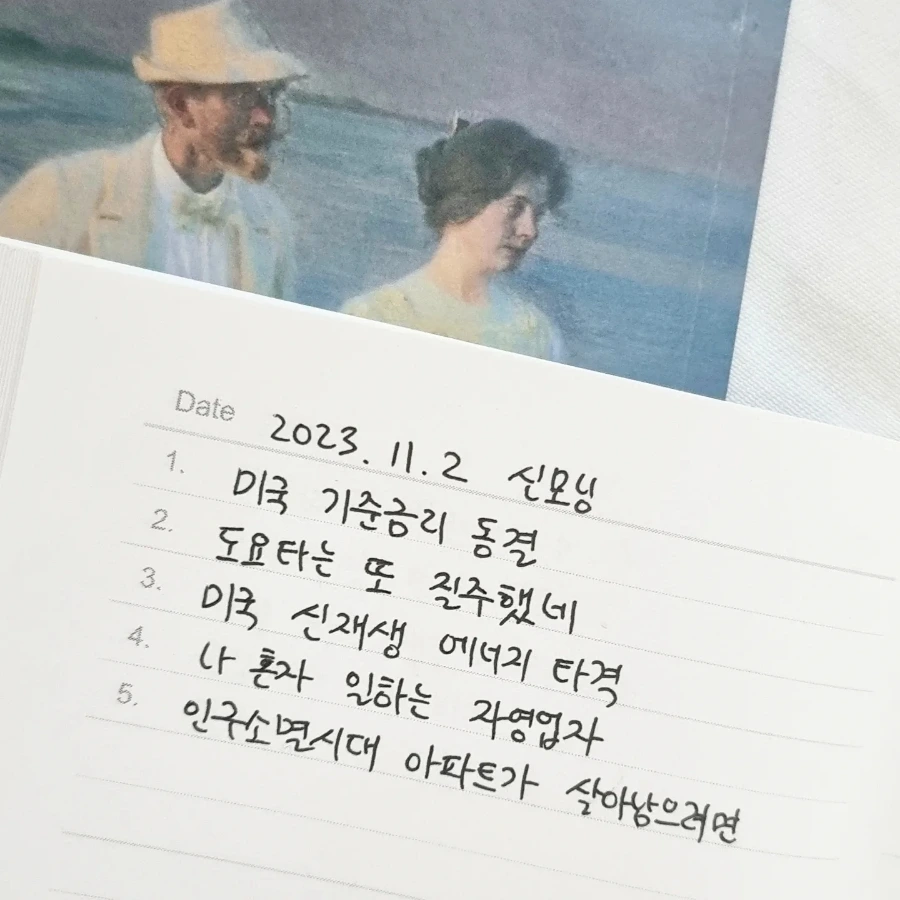 Date 2023. 11. 2 신모닝
1. 미국 기준금리 동결
2. 도요타는 또 질주했네
3. 미국 신재생 에너지 타격
4. 나 혼자 일하는 자영업자
5. 인구소멸시대 아파트가 살아남으려면